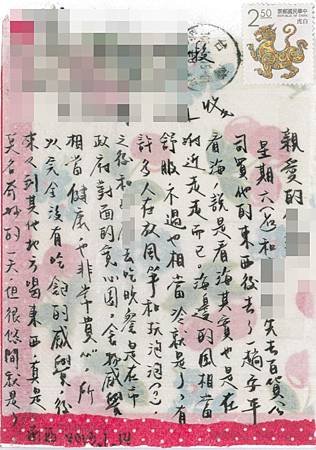 2.50
中華民國郵票
REPUBLIC OF CHINA
白虎
收
親愛的
星期六(8)和 先去百貨公
司買他的東西後去了一趟安平
看海,說是看海其實也是在
附近走走而已。海邊的風相當
舒服不過也相當冷就是了,有
許多人在放風箏和玩泡泡(?)。
之後和 去吃晚餐是在市
政府對面的貪心圓,食物感覺
相當健康而非常貴,所
以完全沒有吃飽的感覺。後
來又到其他地方喝東西真是
莫名奇妙的一天但很悠閒就是了
2013.1.14